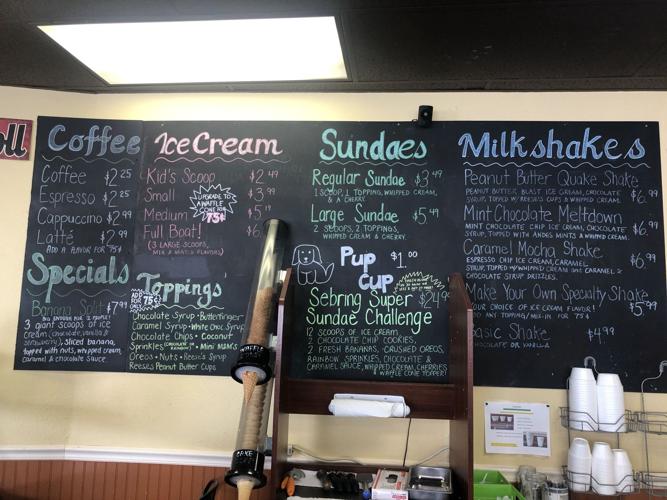 Coffee
Coffee $2.25
Espresso $2.25
Cappuccino $2.99
Latté $2.99
ADD A FLAVOR FOR 75¢
Specials
Banana Split $7.99
3 giant scoops of ice
cream (chocolate, vanilla &
strawberry), sliced banana,
topped with nuts, whipped cream,
caramel & chocolate sauce.
Ice Cream
Kid's Scoop $2.49
Small $3.99
Medium $5.19
Full Boat! $6.
(3 LARGE SCOOPS,
MIX & MATCH FLAVORS)
UPGRADE TO
A WAFFLE
CONE FOR
75¢
Toppings
ADD
FOR
75¢
Chocolate Syrup • Butterfinger
Caramel Syrup • White Choc Syrup
Chocolate Chips • Coconut
Sprinkles (CHOCOLATE OR RAINBOW) • Mini M&M's
Oreos • Nuts • Reese's Syrup
Reeses Peanut Butter Cups
Sundaes
Regular Sundae $3.49
1 SCOOP, 1 TOPPING, WHIPPED CREAM,
& A CHERRY
Large Sundae $5.49
2 SCOOPS, 2 TOPPINGS,
WHIPPED CREAM & CHERRY.
Pup Cup $1.00
Sebring Super $24.99
Sundae Challenge
12 SCOOPS OF ICE CREAM,
2 CHOCOLATE CHIP COOKIES,
2 FRESH BANANAS, CRUSHED OREOS,
RAINBOW SPRINKLES, CHOCOLATE &
CARAMEL SAUCE, WHIPPED CREAM, CHERRIES
& WAFFLE CONE TOPPER!
Milkshakes
Peanut Butter Quake Shake
PEANUT BUTTER BLAST ICE CREAM, CHOCOLATE $6.99
SYRUP, TOPPED W/ REESE'S CUPS & WHIPPED CREAM.
Mint Chocolate Meltdown
MINT CHOCOLATE CHIP ICE CREAM, CHOCOLATE $6.99
SYRUP, TOPPED WITH ANDES MINTS & WHIPPED CREAM.
Caramel Mocha Shake
ESPRESSO CHIP ICE CREAM, CARAMEL $6.99
SYRUP, TOPPED W/ WHIPPED CREAM AND CARAMEL &
CHOCOLATE SYRUP DRIZZLES.
Make Your Own Specialty Shake
YOUR CHOICE OF ICE CREAM FLAVOR! $5.99
ADD ANY TOPPING/MIX-IN FOR 75¢
Basic Shake $4.99
CHOCOLATE OR VANILLA
CAKE